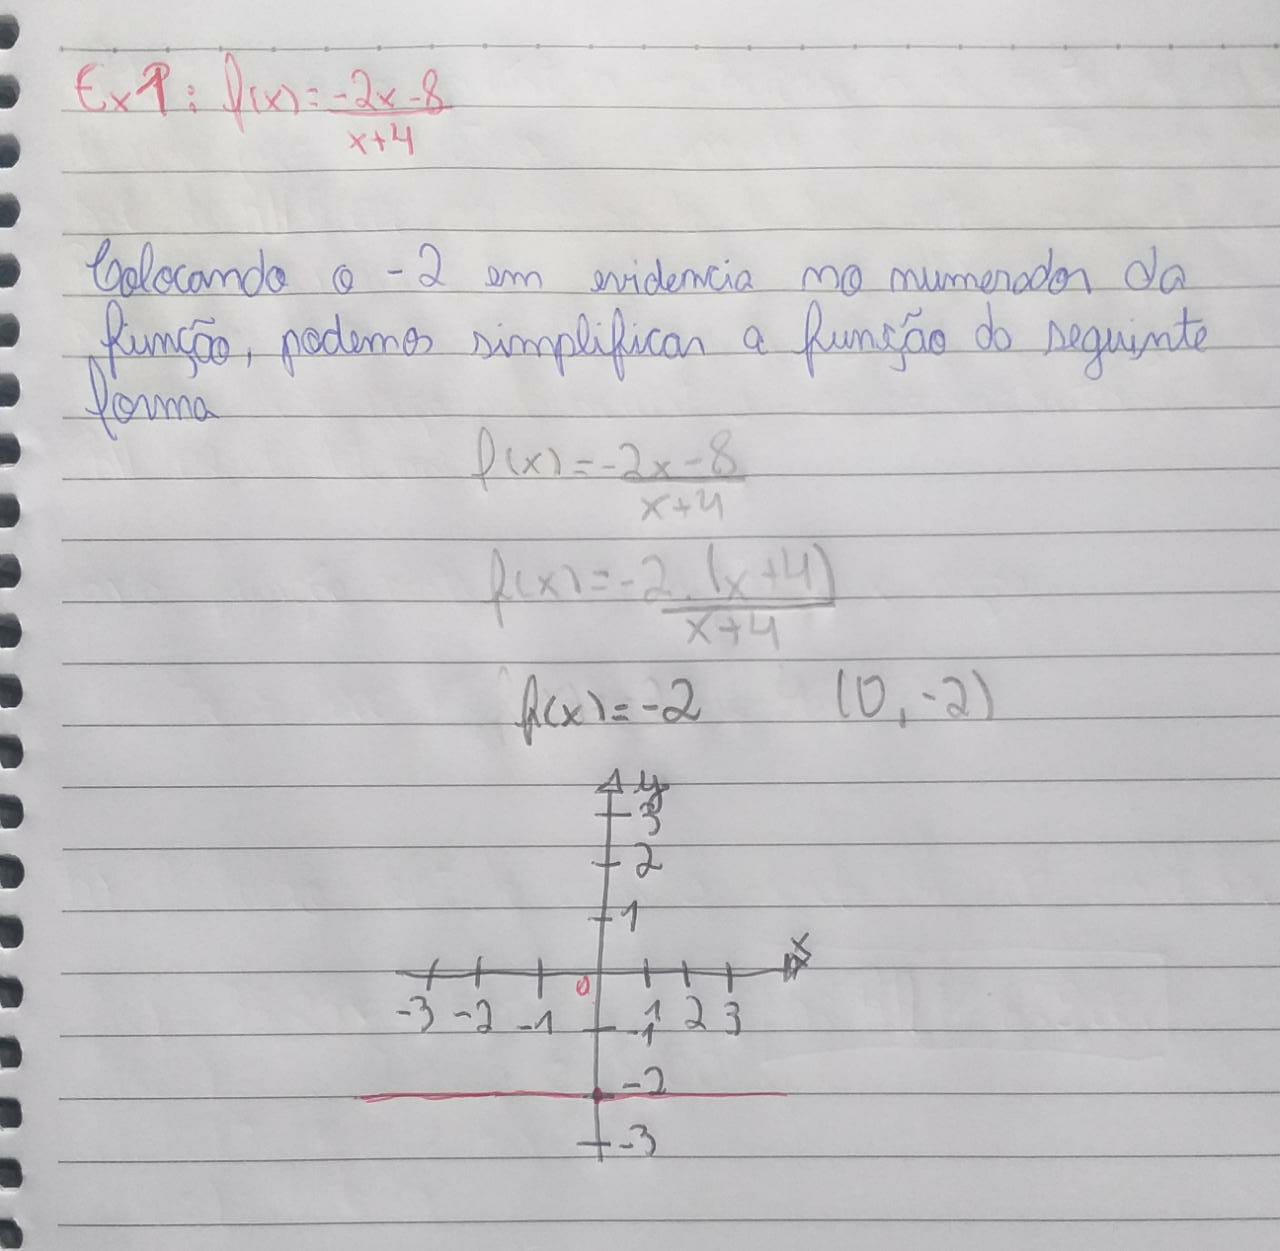 Ex1: f(x) = -2x-8
x+4
Colocando o -2 em evidencia no numerador da
função, podemos simplificar a função do seguinte
forma
f(x) = -2x-8
x+4
f(x) = -2.(x+4)
x+4
f(x) = -2 (0, -2)
y
3
2
1
x
0
-3 -2 -1 1 2 3
-1
-2
-3